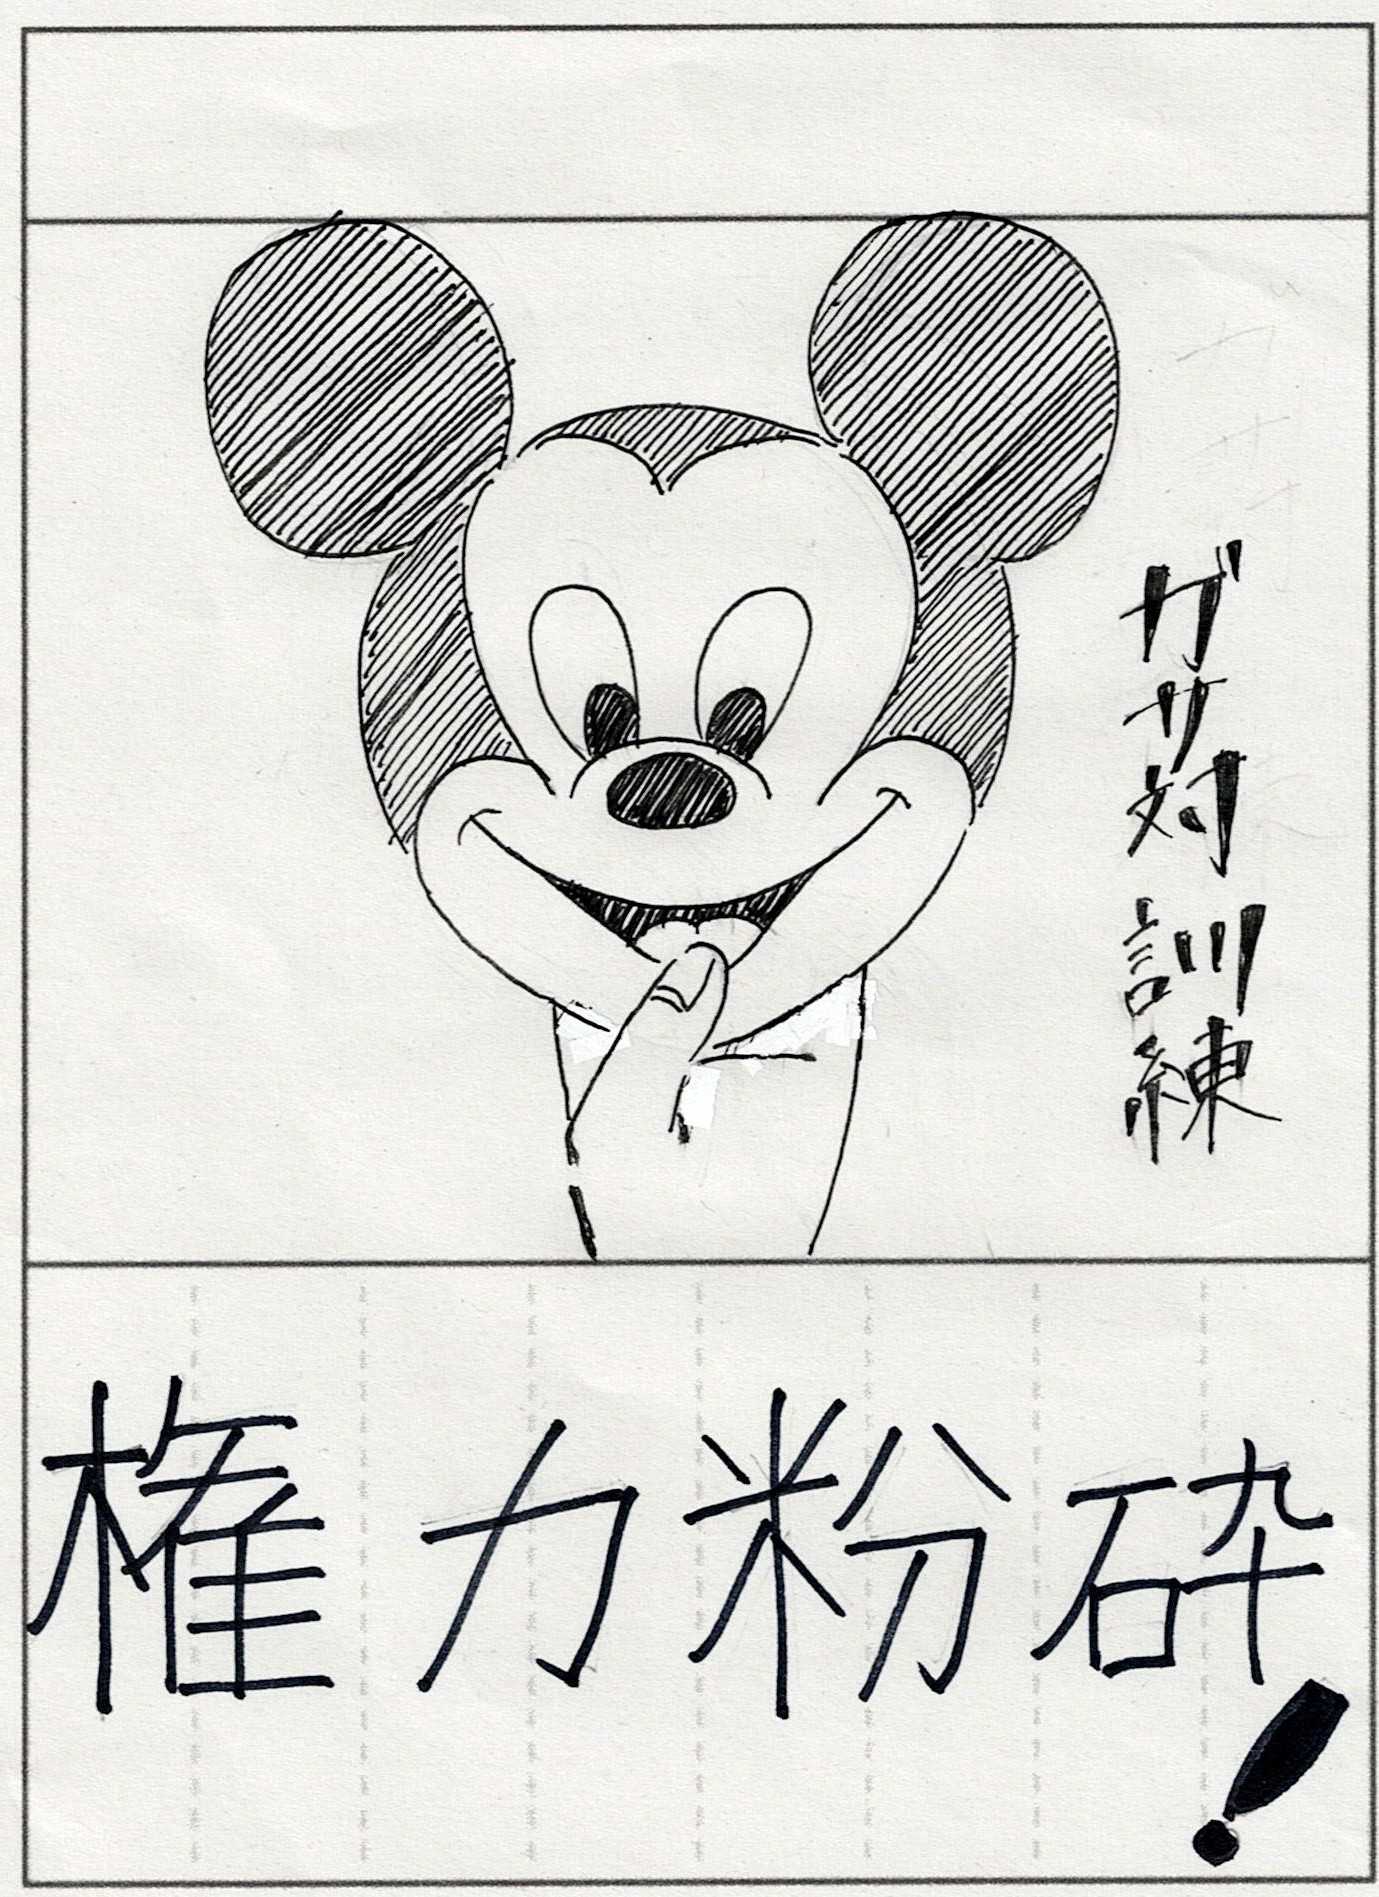 ガサ対訓練
権力粉砕!